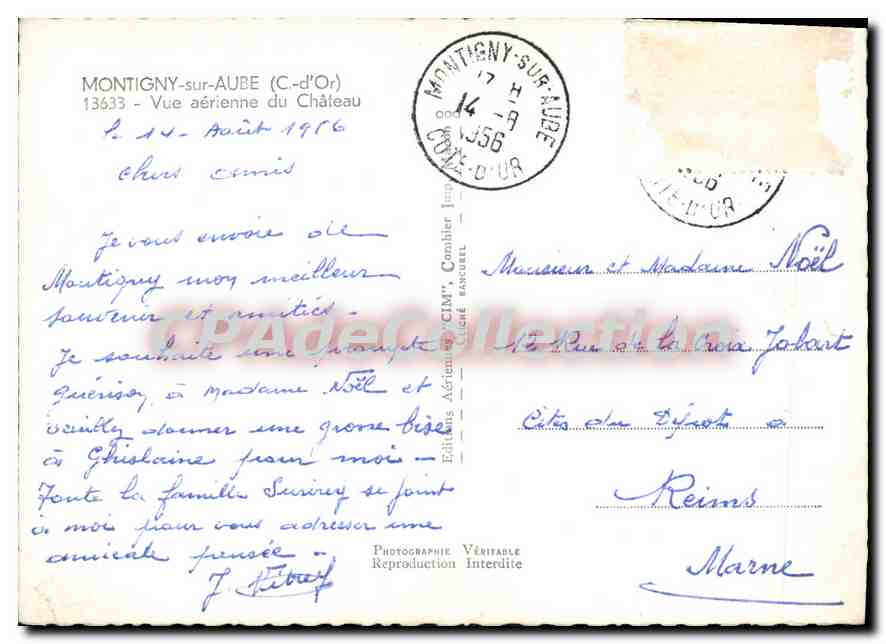 MONTIGNY-sur-AUBE (C.-d'Or)
13633 - Vue aérienne du Château
le 14 Août 1956
Chers amis
Je vous envoie de
Montigny mon meilleur
souvenir et amitiés.
Je souhaite une prompte
guérison à Madame Noël et
veuillez donner une grosse bise
à Ghislaine pour moi -
Toute la famille se joint
à moi pour vous adresser une
amicale pensée -
J.
MONTIGNY-SUR-AUBE
17 H
14 -8
1956
COTE-D'OR
Editions Aériennes "CIM", Combier Imp.
CLICHÉ RANCUREL
PHOTOGRAPHIE VÉRITABLE
Reproduction Interdite
TE-D'OR
Monsieur et Madame Noël
Rue de la Croix Jobart
Cités du Dépôts à
Reims
Marne
CPAdeCollection